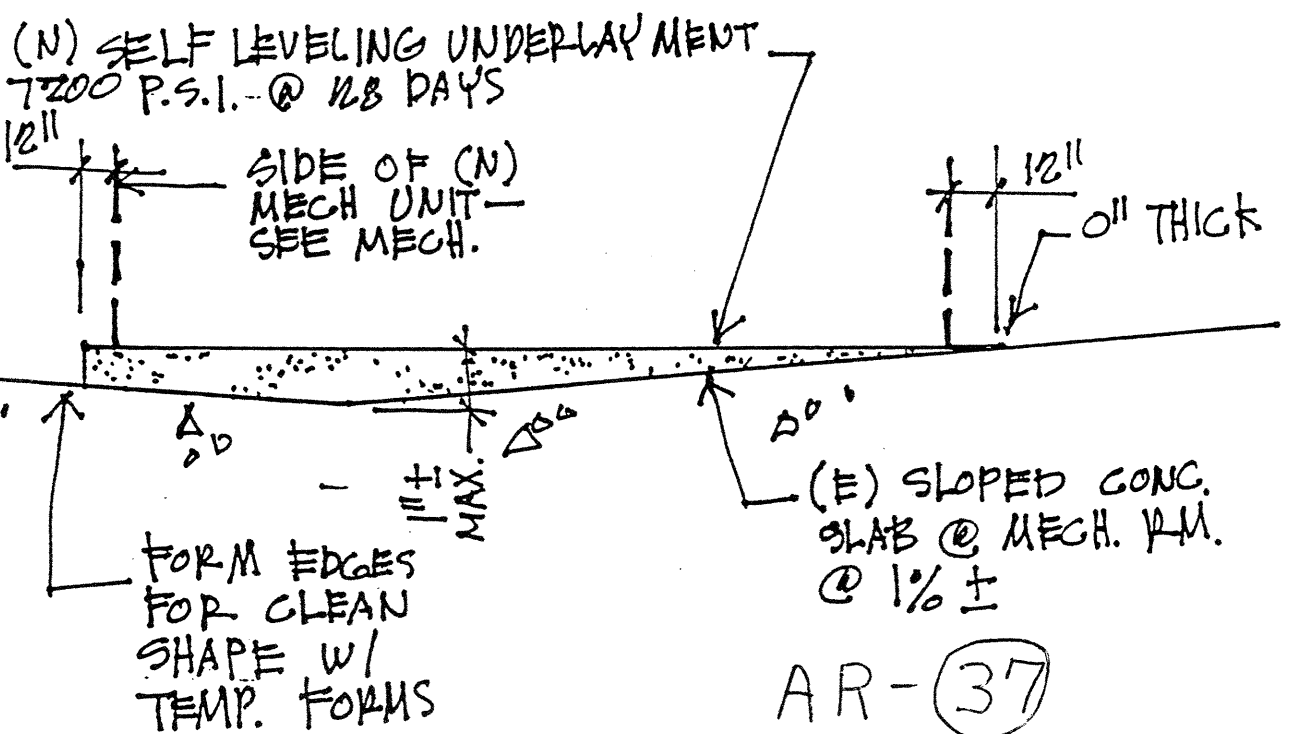 (N) SELF LEVELING UNDERLAYMENT
7200 P.S.I. @ 28 DAYS
12"
SIDE OF (N)
MECH UNIT—
SEE MECH.
12"
0" THICK
MAX.
(E) SLOPED CONC.
SLAB @ MECH. RM.
@ 1% ±
FORM EDGES
FOR CLEAN
SHAPE W/
TEMP. FORMS
AR-37